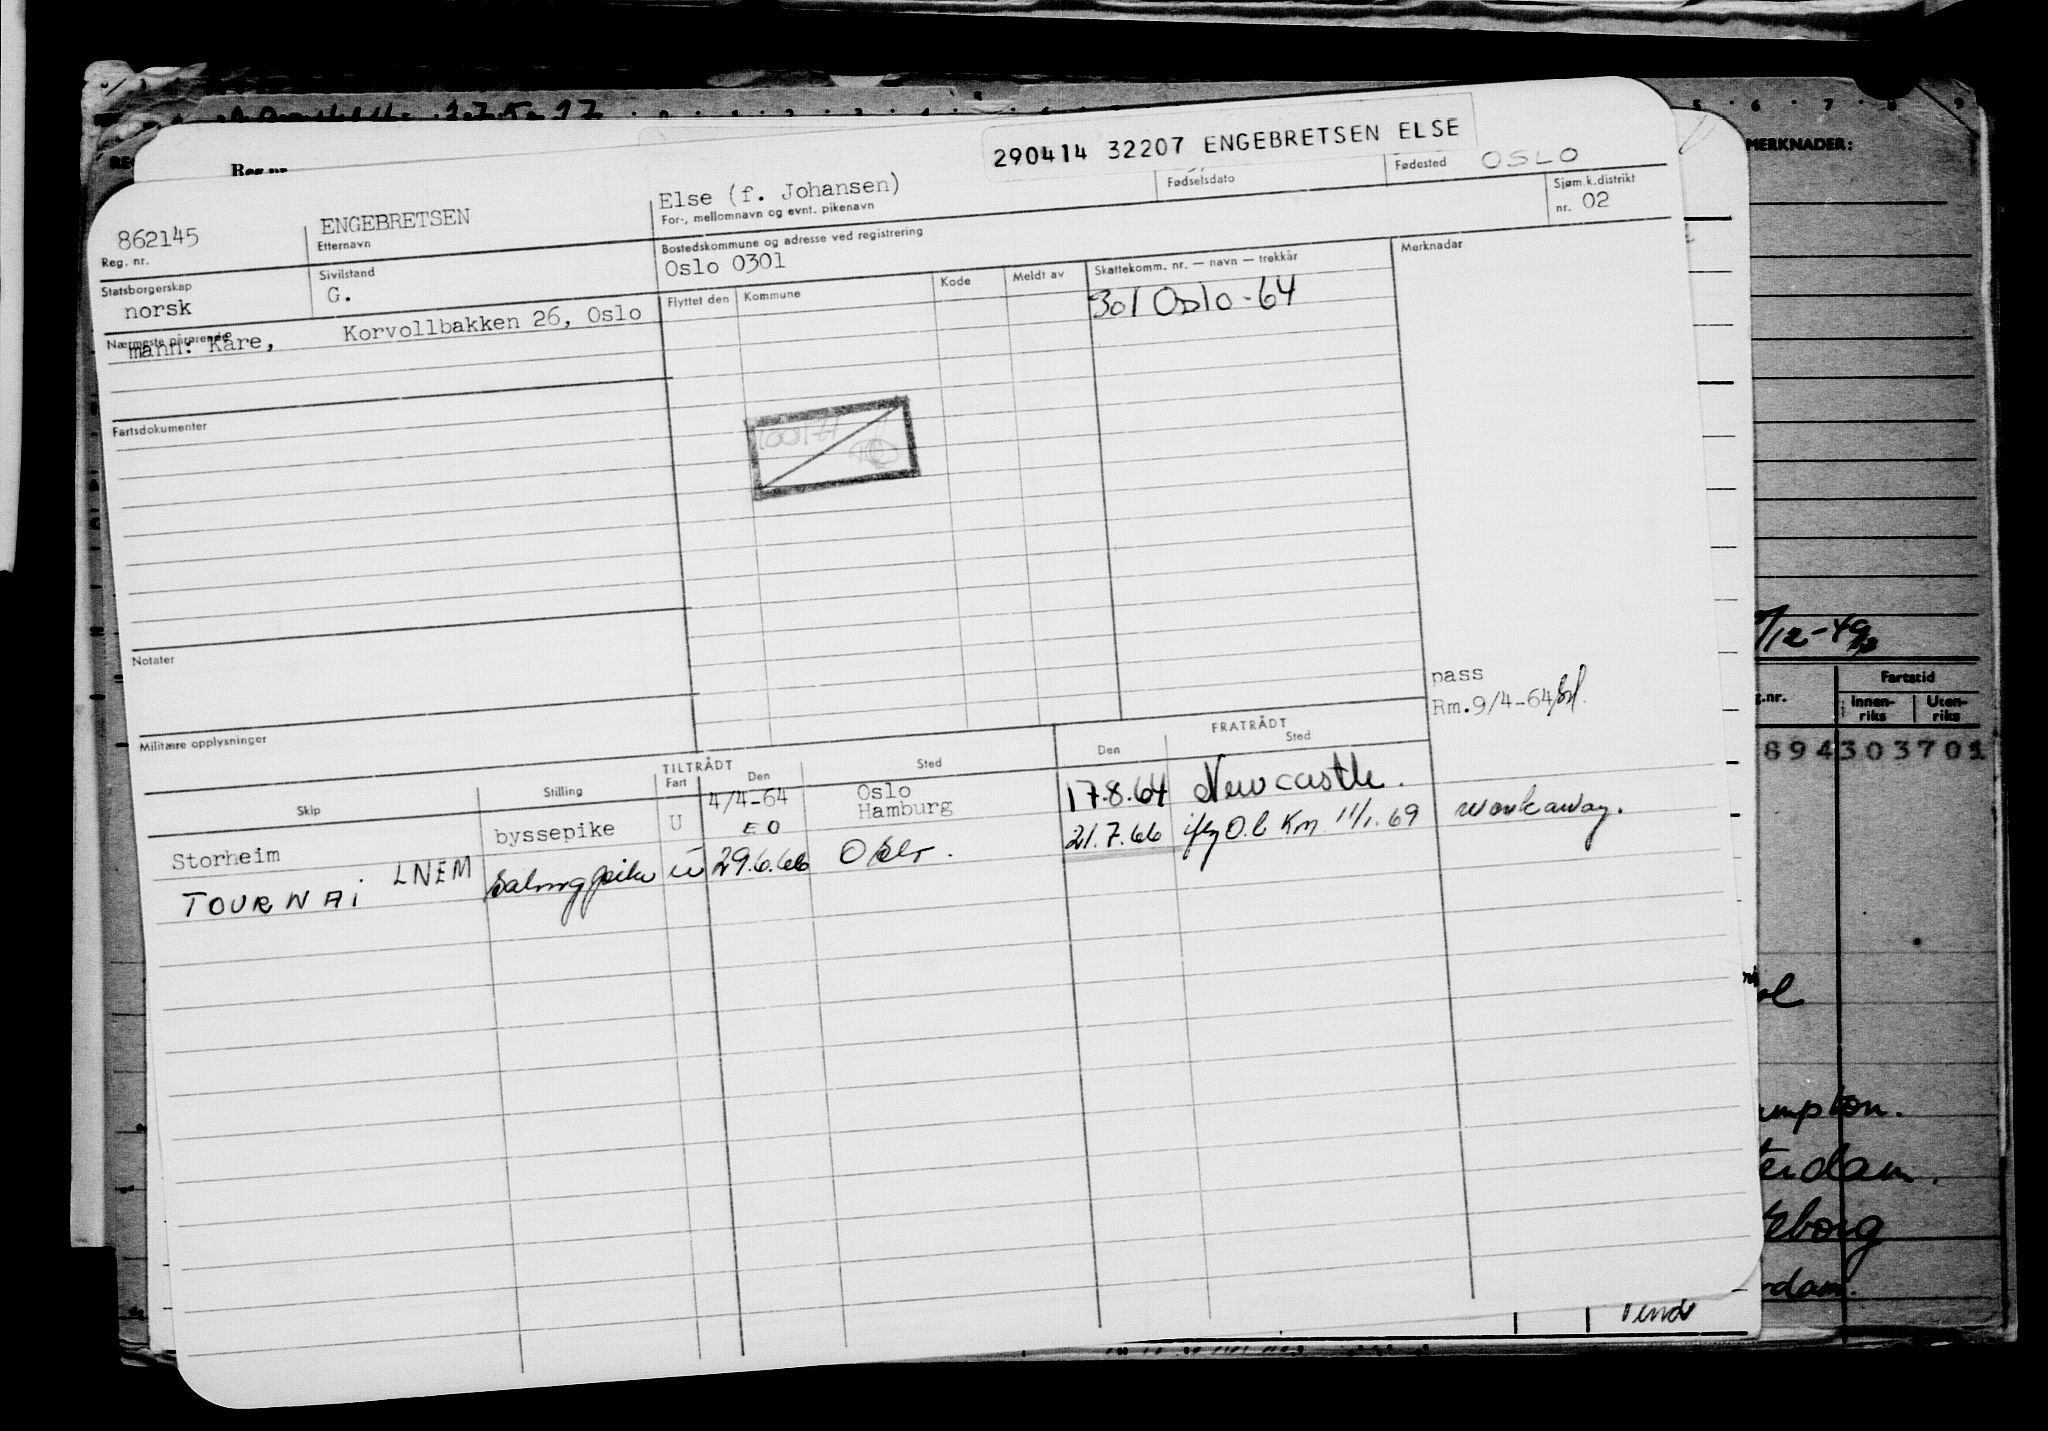 290414 32207 ENGEBRETSEN ELSE
862145
Reg. nr.
ENGEBRETSEN
Etternavn
Else (f. Johansen)
For-, mellomnavn og evnt. pikenavn
Fødselsdato
Fødested OSLO
Statsborgerskap
norsk
Sivilstand
G.
Bostedskommune og adresse ved registrering
Oslo 0301
Sjøm.k.distrikt
nr. 02
Nærmeste pårørende
mann: Kåre, Korvollbakken 26, Oslo
Flyttet den Kommune Kode Meldt av Skattekomm. nr. — navn — trekkår Merknader
301 Oslo-64
Fartsdokumenter
Notater
Militære opplysninger
pass
Rm.9/4-64
TILTRÅDT FRATRÅDT
Skip Stilling Fart Den Sted Den Sted
Storheim byssepike U 4/4-64 Oslo 17.8.64 Newcastle.
EO Hamburg
TOURNAI LNEM Salongpike u 29.6.66 Oslo. 21.7.66 11/1.69 workaway.
MERKNADER:
/12-49
Fartstid
Innen-riks Uten-riks
894303701
umpton.
terdam.
teborg
rdam.
Vend
Reg nr